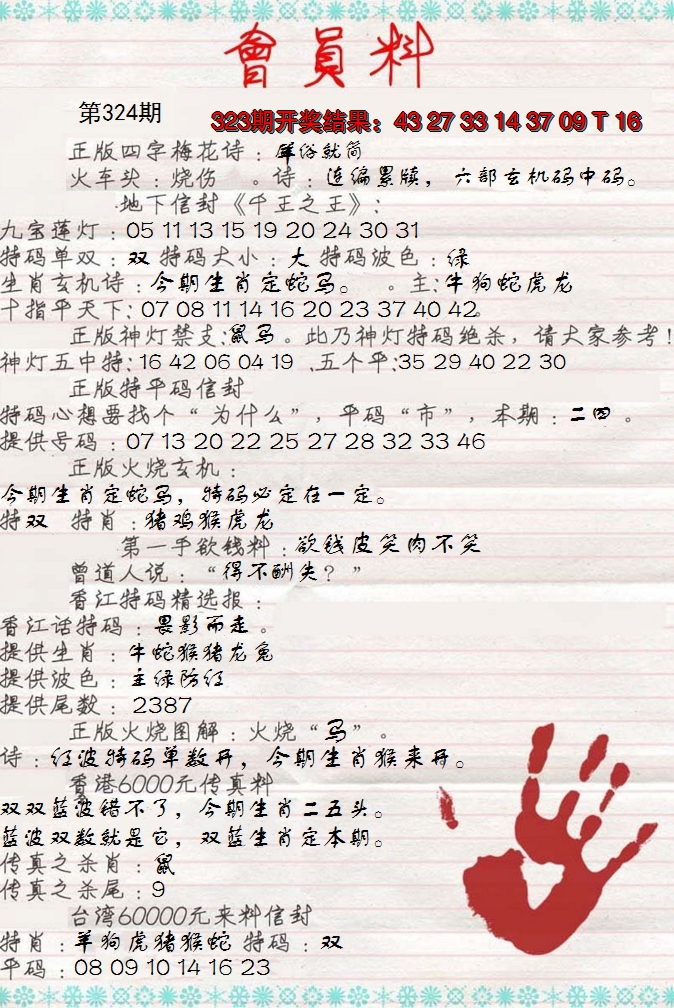 會員料
第324期
323期开奖结果：43 27 33 14 37 09 T 16
正版四字梅花诗：屏俗就简
火车头：烧伤 。诗：连编累牍，六部玄机码中码。
地下信封《千王之王》：
九宝莲灯：05 11 13 15 19 20 24 30 31
特码单双：双 特码大小：大 特码波色：绿
生肖玄机诗：今期生肖定蛇马。 。主：牛狗蛇虎龙
十指平天下：07 08 11 14 16 20 23 37 40 42。
正版神灯禁支：鼠马。此乃神灯特码绝杀，请大家参考！
神灯五中特：16 42 06 04 19 、五个平：35 29 40 22 30
正版特平码信封
特码心想要找个“为什么”，平码“市”，本期：二四。
提供号码：07 13 20 22 25 27 28 32 33 46
正版火烧玄机：
今期生肖定蛇马，特码必定在一定。
特双 特肖：猪鸡猴虎龙
第一手欲钱料：欲钱皮笑肉不笑
曾道人说：“得不酬失？”
香江特码精选报：
香江话特码：畏影而走。
提供生肖：牛蛇猴猪龙兔
提供波色：主绿防红
提供尾数：2387
正版火烧图解：火烧“马”。
诗：红波特码单数开，今期生肖猴来开。
香港6000元传真料
双双蓝波错不了，今期生肖二五头。
蓝波双数就是它，双蓝生肖定本期。
传真之杀肖：鼠
传真之杀尾：9
台湾60000元来料信封
特肖：羊狗虎猪猴蛇 特码：双
平码：08 09 10 14 16 23